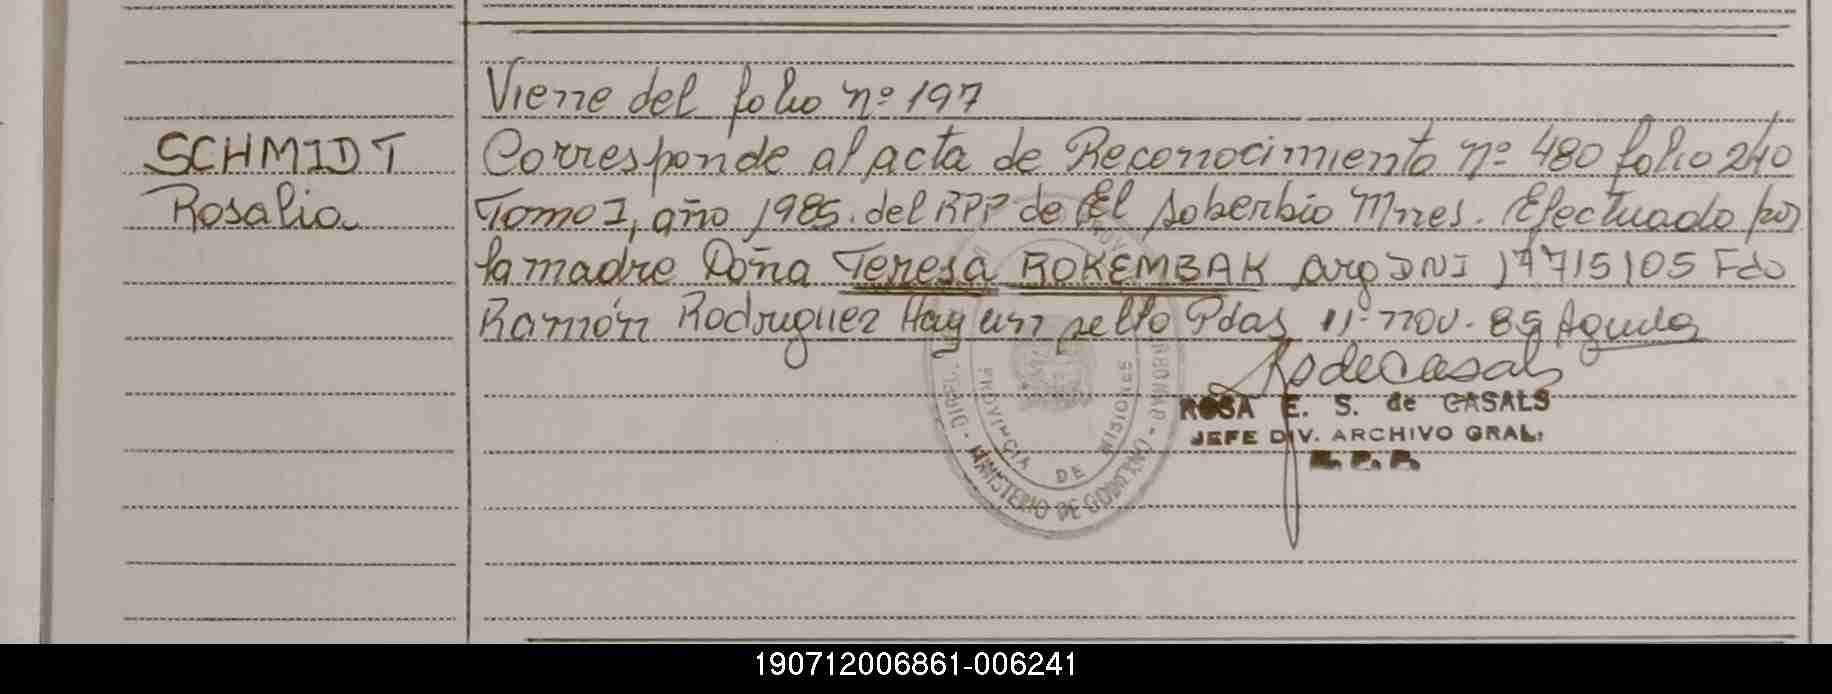 Viene del folio nº 197
SCHMIDT
Rosalia
Corresponde al acta de Reconocimiento nº 480 folio 240
Tomo I, año 1985. del RPP de El Soberbio Mnes. Efectuado por
la madre Doña Teresa ROKEMBAK arg DNI 17715105 Fdo
Ramón Rodriguez Hay un sello Pdas 11-nov-85 Aguda
ROSA E. S. de CASALS
JEFE DIV. ARCHIVO GRAL.
R. P. P.
PROVINCIA DE MISIONES
MINISTERIO DE GOBIERNO
190712006861-006241